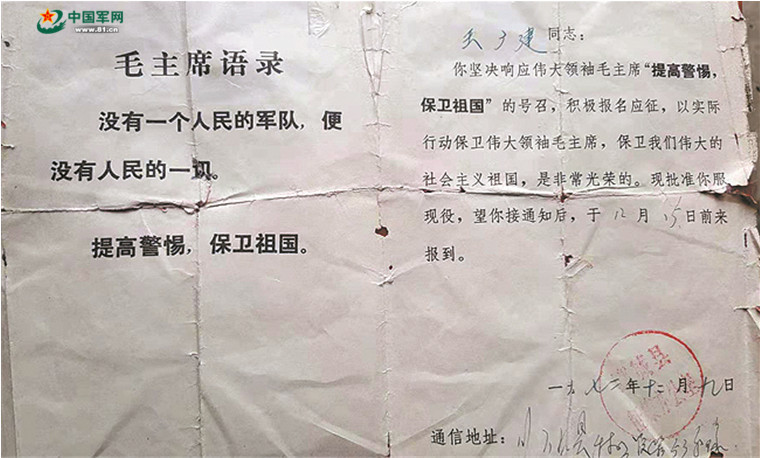 中国军网
www.81.cn
毛主席语录
没有一个人民的军队，便
没有人民的一切。
提高警惕，保卫祖国。
建同志：
你坚决响应伟大领袖毛主席“提高警惕，
保卫祖国”的号召，积极报名应征，以实际
行动保卫伟大领袖毛主席，保卫我们伟大的
社会主义祖国，是非常光荣的。现批准你服
现役，望你接通知后，于12月15日前来
报到。
县
一九七二年十二月九日
通信地址：